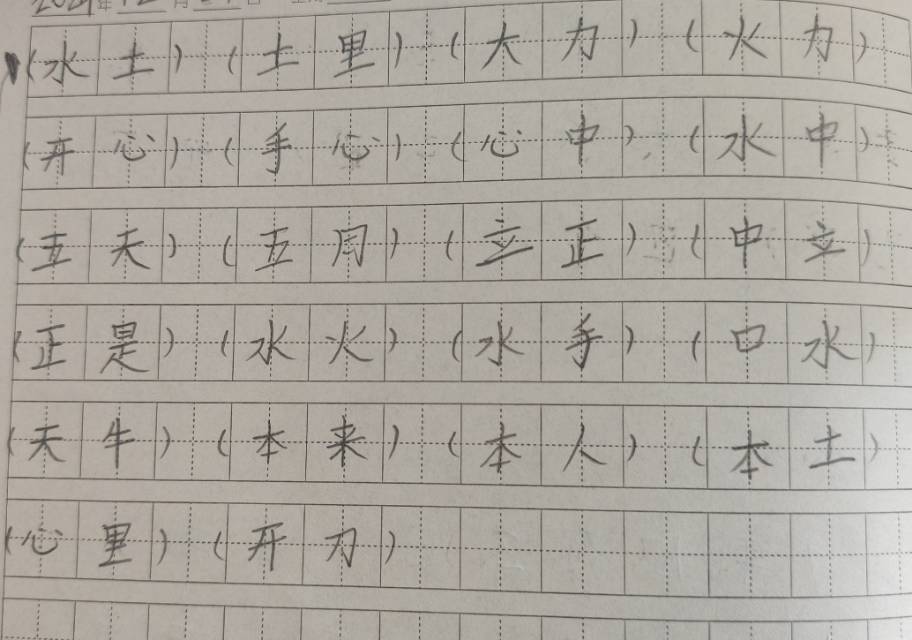 (水土)(土里)(大力)(火力)
(开心)(手心)(心中)(水中)
(五天)(五月)(立正)(中立)
(正是)(水火)(水手)(口水)
(天牛)(本来)(本人)(本土)
(心里)(开刀)